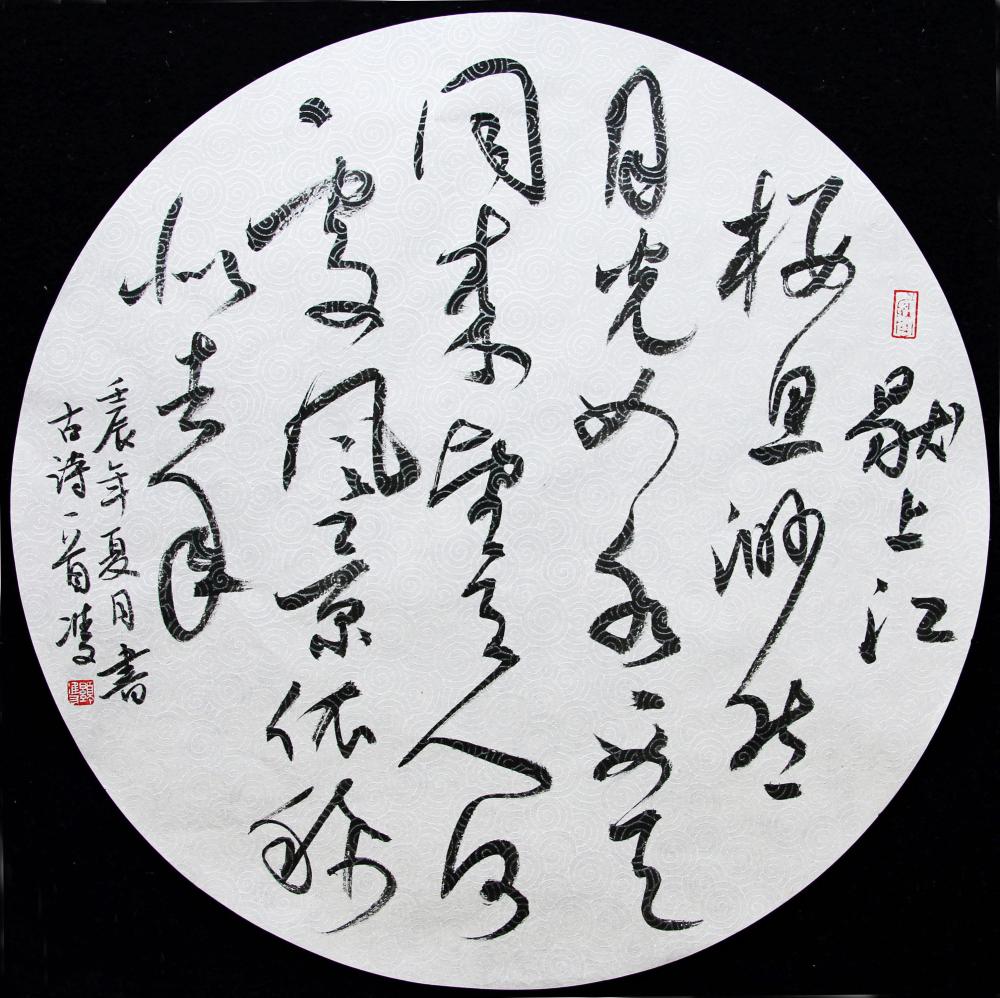 獨上江
樓思渺然
月光如水水如天
同來望月人何
處風景依稀
似去年
壬辰年夏月書
古詩一首